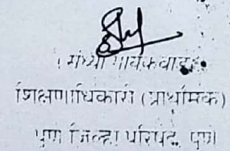 (संध्या गायकवाड)
शिक्षणाधिकारी (प्राथमिक)
पुणे जिल्हा परिषद, पुणे